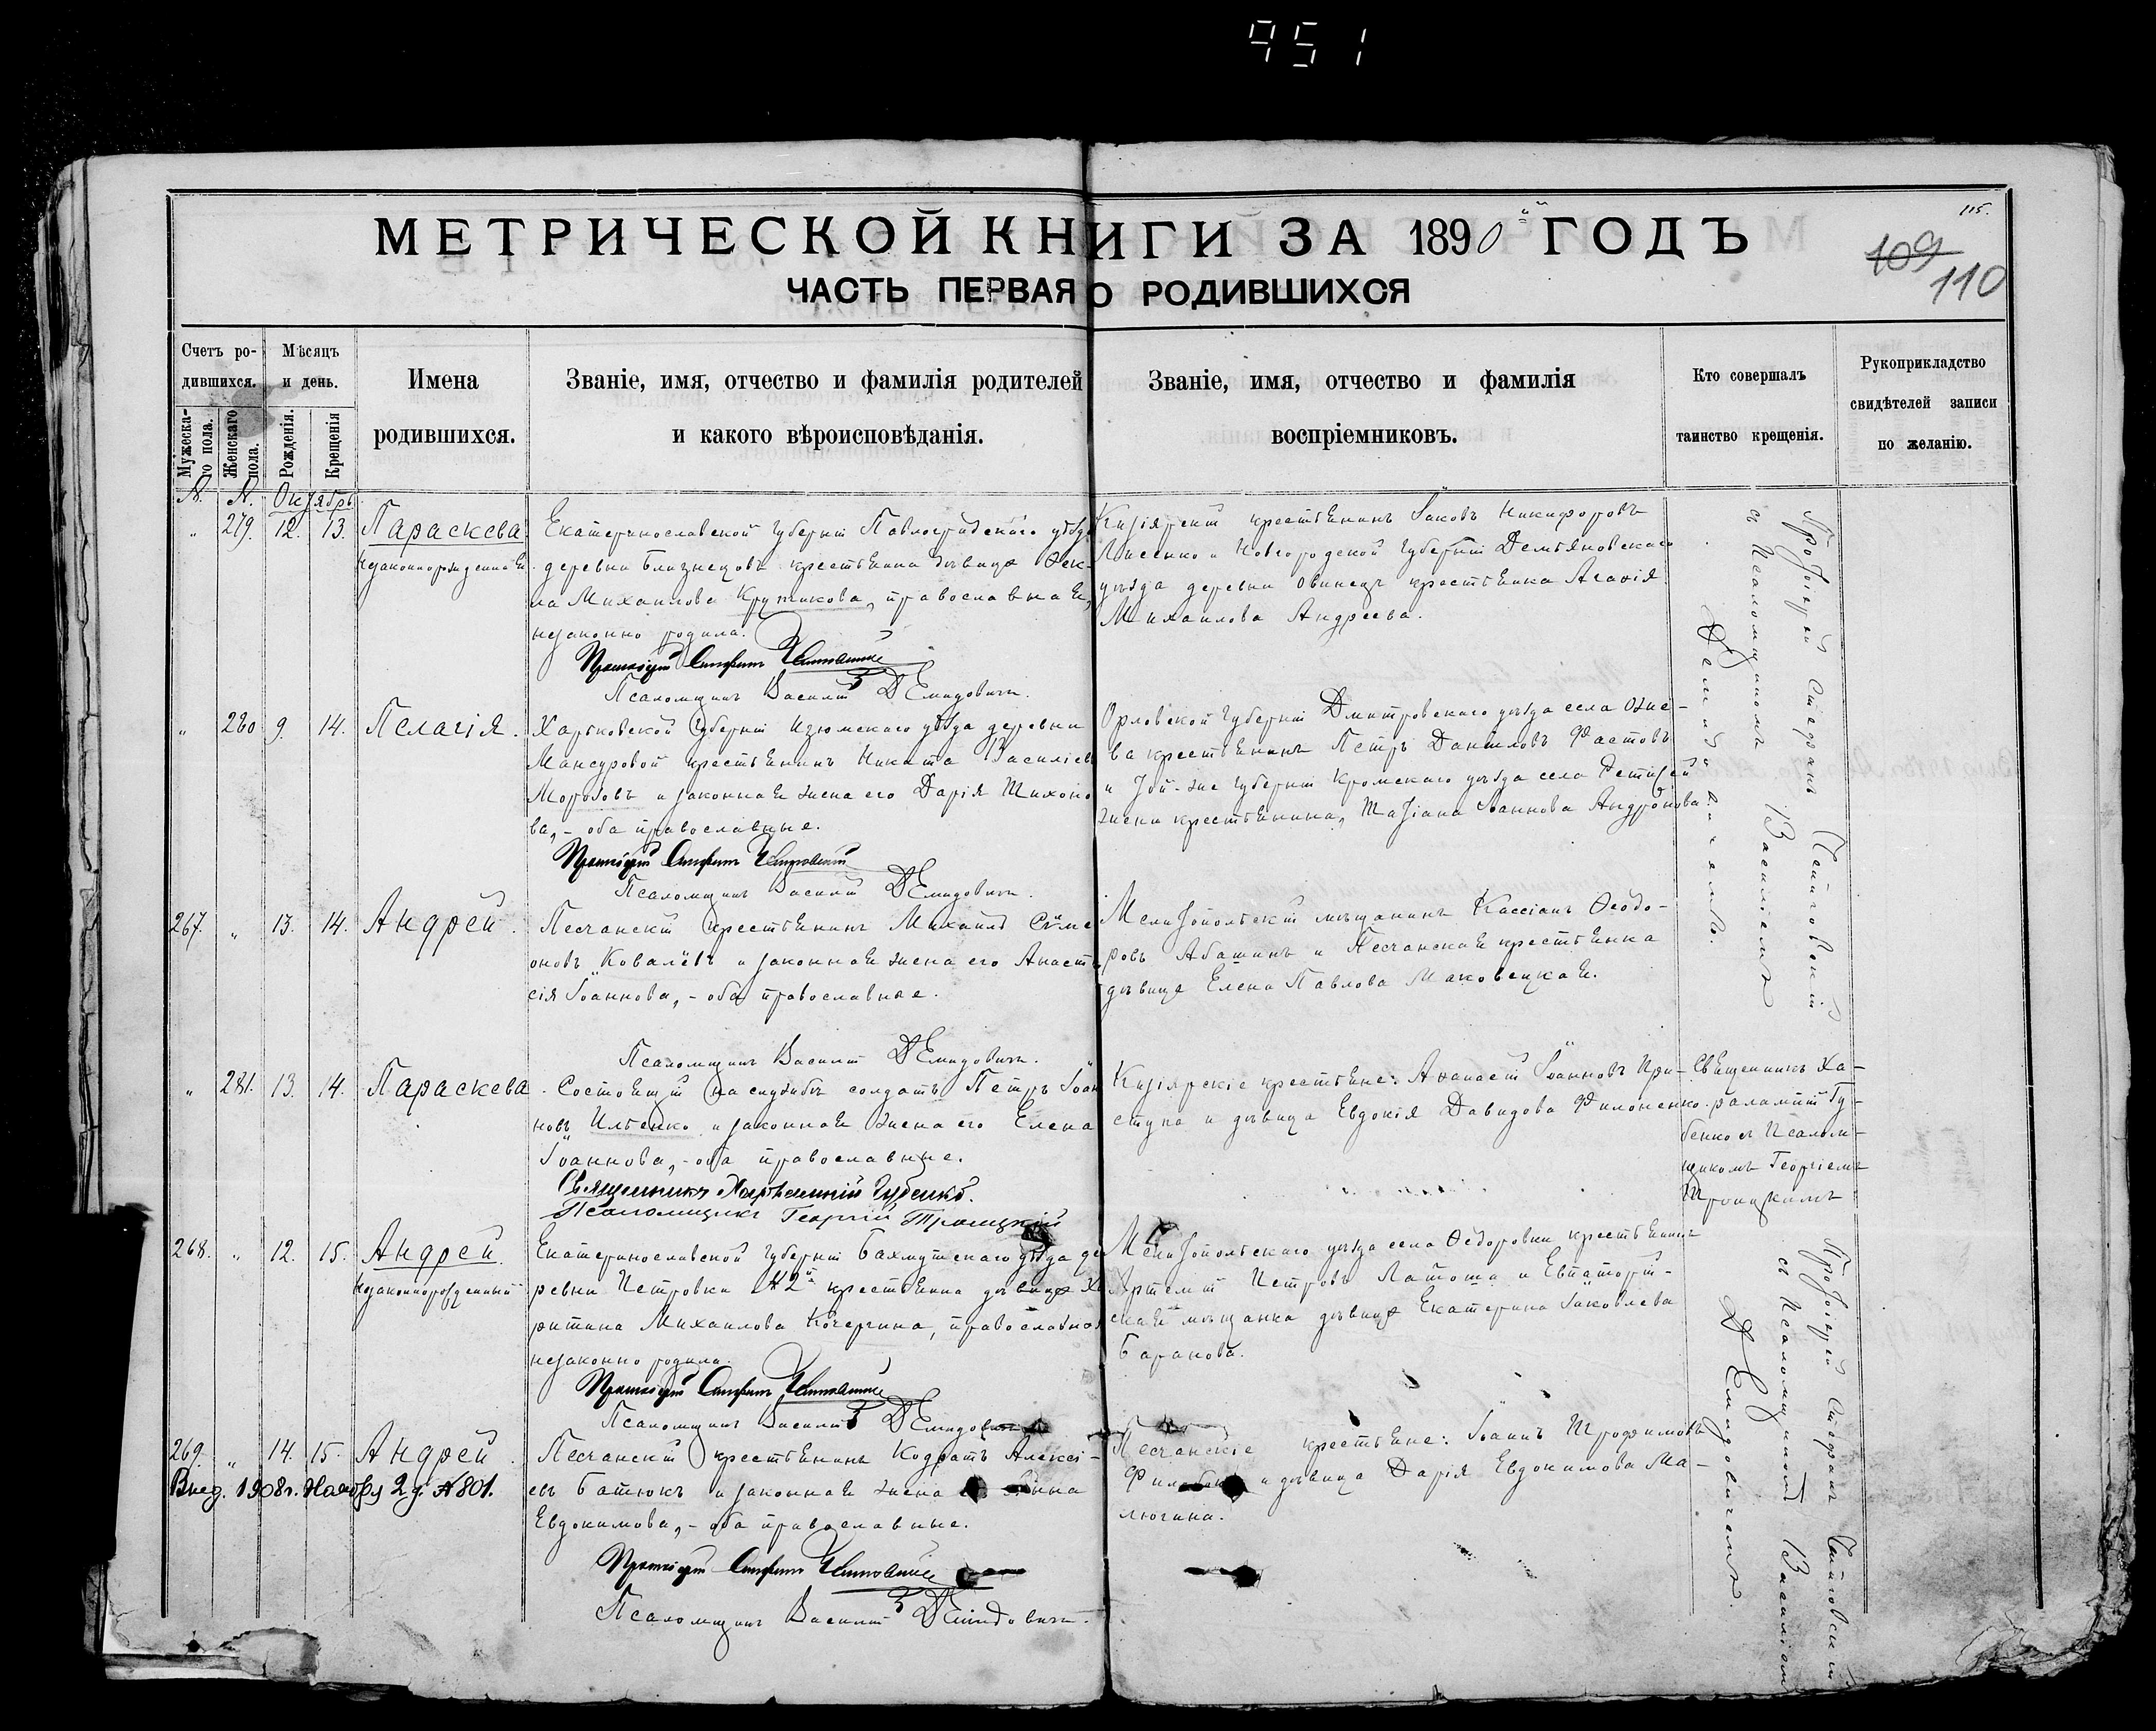 951
МЕТРИЧЕСКОЙ КНИГИ ЗА 1890й ГОДЪ
115.
109
110
ЧАСТЬ ПЕРВАЯ О РОДИВШИХСЯ
Счетъ ро-
дившихся.
Мужеска-
го пола.
Женскаго
пола.
Мѣсяцъ
и день.
Рожденія.
Крещенія
Имена
родившихся.
Званіе, имя, отчество и фамилія родителей
и какого вѣроисповѣданія.
Званіе, имя, отчество и фамилія
воспріемниковъ.
Кто совершалъ
таинство крещенія.
Рукоприкладство
свидѣтелей записи
по желанію.
N. N. Октябрь
" 279. 12. 13. Параскева
незаконнорожденная
Екатеринославской губерніи Павлоградскаго уѣзда
деревни Близнецовъ крестьянка дѣвица Ѳек-
ла Михаилова Крутикова, православная,
незаконно родила.
Протоіерей Стефанъ
Псаломщикъ Василій Демидовичъ.
Кизіярскій крестьянинъ Іаковъ Никифоровъ
Лисенко и Новгородской губерніи Демьяновскаго
уѣзда деревни Овинецъ крестьянка Агаѳія
Михаилова Андреева.
Протоіерей Стефанъ
съ Псаломщикомъ Василіемъ
" 280 9. 14. Пелагія.
Харьковской губерніи Изюмскаго уѣзда деревни
Мансуровой крестьянинъ Никита Василіевъ
Морозовъ и законная жена его Дарія Тихоно
ва, - оба православные.
Протоіерей Стефанъ
Псаломщикъ Василій Демидовичъ.
Орловской губерніи Дмитровскаго уѣзда села
ва крестьянинъ Петръ Даніиловъ Фастовъ
и той-же губерніи Кромскаго уѣзда села
жена крестьянина, Татіана Іоаннова Андронова.
267. " 13. 14. Андрей.
Песчанскій крестьянинъ Михаилъ Симе
оновъ Ковалёвъ и законная жена его Анаста
сія Іоаннова, - оба православные.
Псаломщикъ Василій Демидовичъ.
Мелитопольскій мѣщанинъ Кассіанъ Ѳеодо-
ровъ Абашинъ и Песчанская крестьянка
дѣвица Елена Павлова Маковецкая.
" 281. 13. 14. Параскева
Состоящій на службѣ солдатъ Петръ Іоан
новъ Ильенко и законная жена его Елена
Іоаннова, - оба православные.
Священникъ Харалампій Губенко.
Псаломщикъ Георгій Троицкій
Кизіярскіе крестьяне: Аѳанасій Іоанновъ При-
ступа и дѣвица Евдокія Давидова Филоненко.
Священникъ Ха-
ралампій Гу-
бенко съ Псалом-
щикомъ Георгіемъ
Троицкимъ
268. " 12. 15. Андрей.
незаконнорожденный
Екатеринославской губерніи Бахмутскаго уѣзда де
ревни Петровки №2й крестьянка дѣвица Ха
ритина Михаилова Кочергина, православная
незаконно родила.
Протоіерей Стефанъ
Псаломщикъ Василій Демидовичъ
Мелитопольскаго уѣзда села Ѳедоровки крестьянинъ
Артемій Петровъ Латоша и Евпаторій-
ская мѣщанка дѣвица Екатерина Іаковлева
Баранова.
Протоіерей Стефанъ
съ Псаломщикомъ Василіемъ
Демидовичемъ.
269. " 14. 15. Андрей.
Выд. 1908г. Ноября 2 д. №801.
Песчанскій крестьянинъ Кодратъ Алексі-
евъ Батюкъ и законная жена его Анна
Евдокимова, - оба православные.
Протоіерей Стефанъ
Псаломщикъ Василій Демидовичъ.
Песчанскіе крестьяне: Іоаннъ Трофимовъ
и дѣвица Дарія Евдокимова Ма-
люгина.